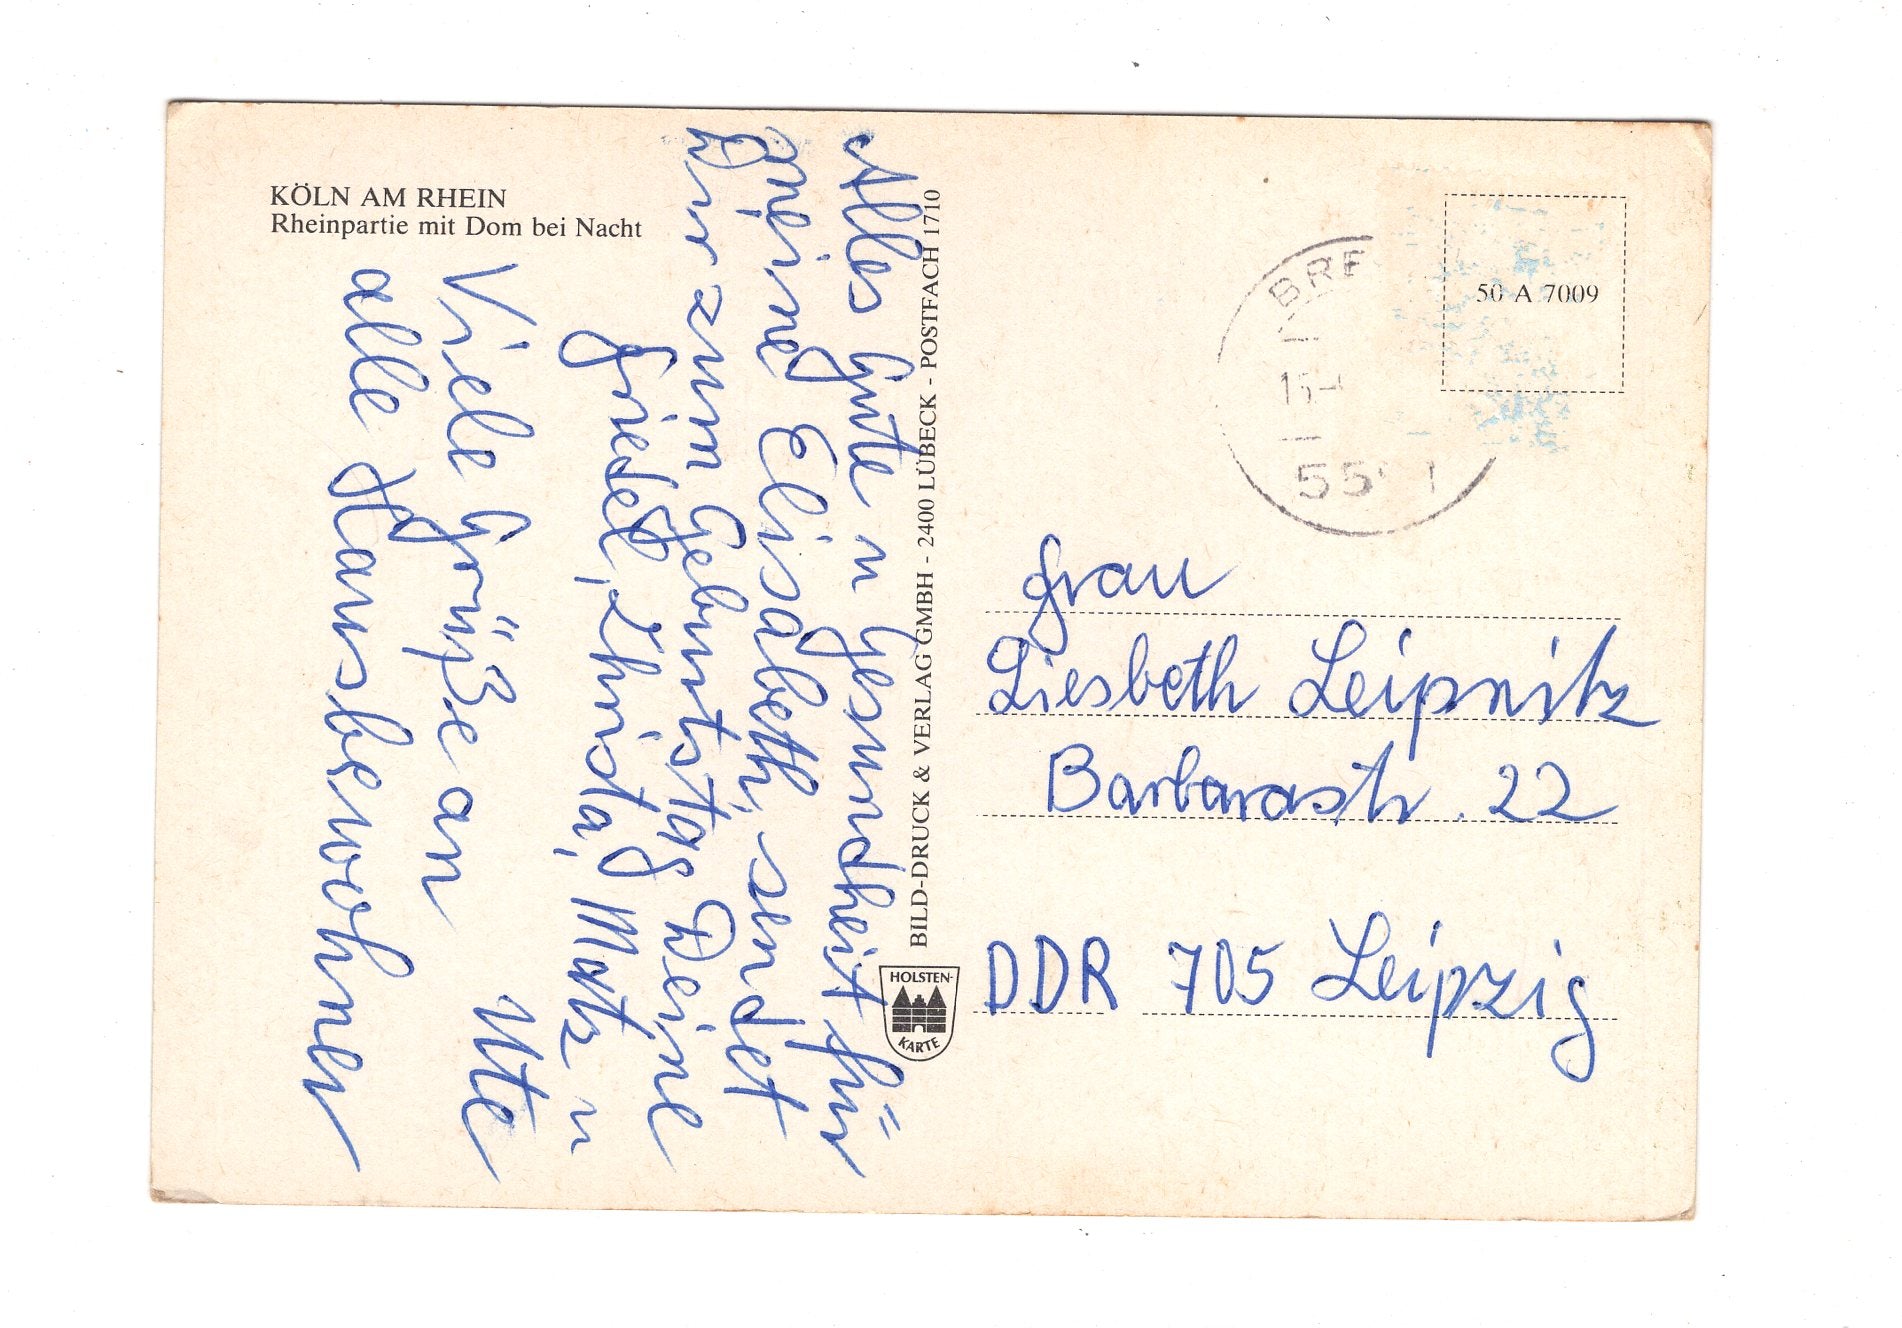 KÖLN AM RHEIN
Rheinpartie mit Dom bei Nacht
Alles Gute u Gesundheit für
meine Elisabeth, sendet
Dir zum Geburtstag Deine
Friedel, Christa, Matz u
Ute
Viele Grüße an
alle Hausbewohner
BILD-DRUCK & VERLAG GMBH - 2400 LÜBECK - POSTFACH 1710
HOLSTEN-
KARTE
50 A 7009
BRE
15-
55
Frau
Liesbeth Leipnitz
Barbarastr. 22
DDR 705 Leipzig